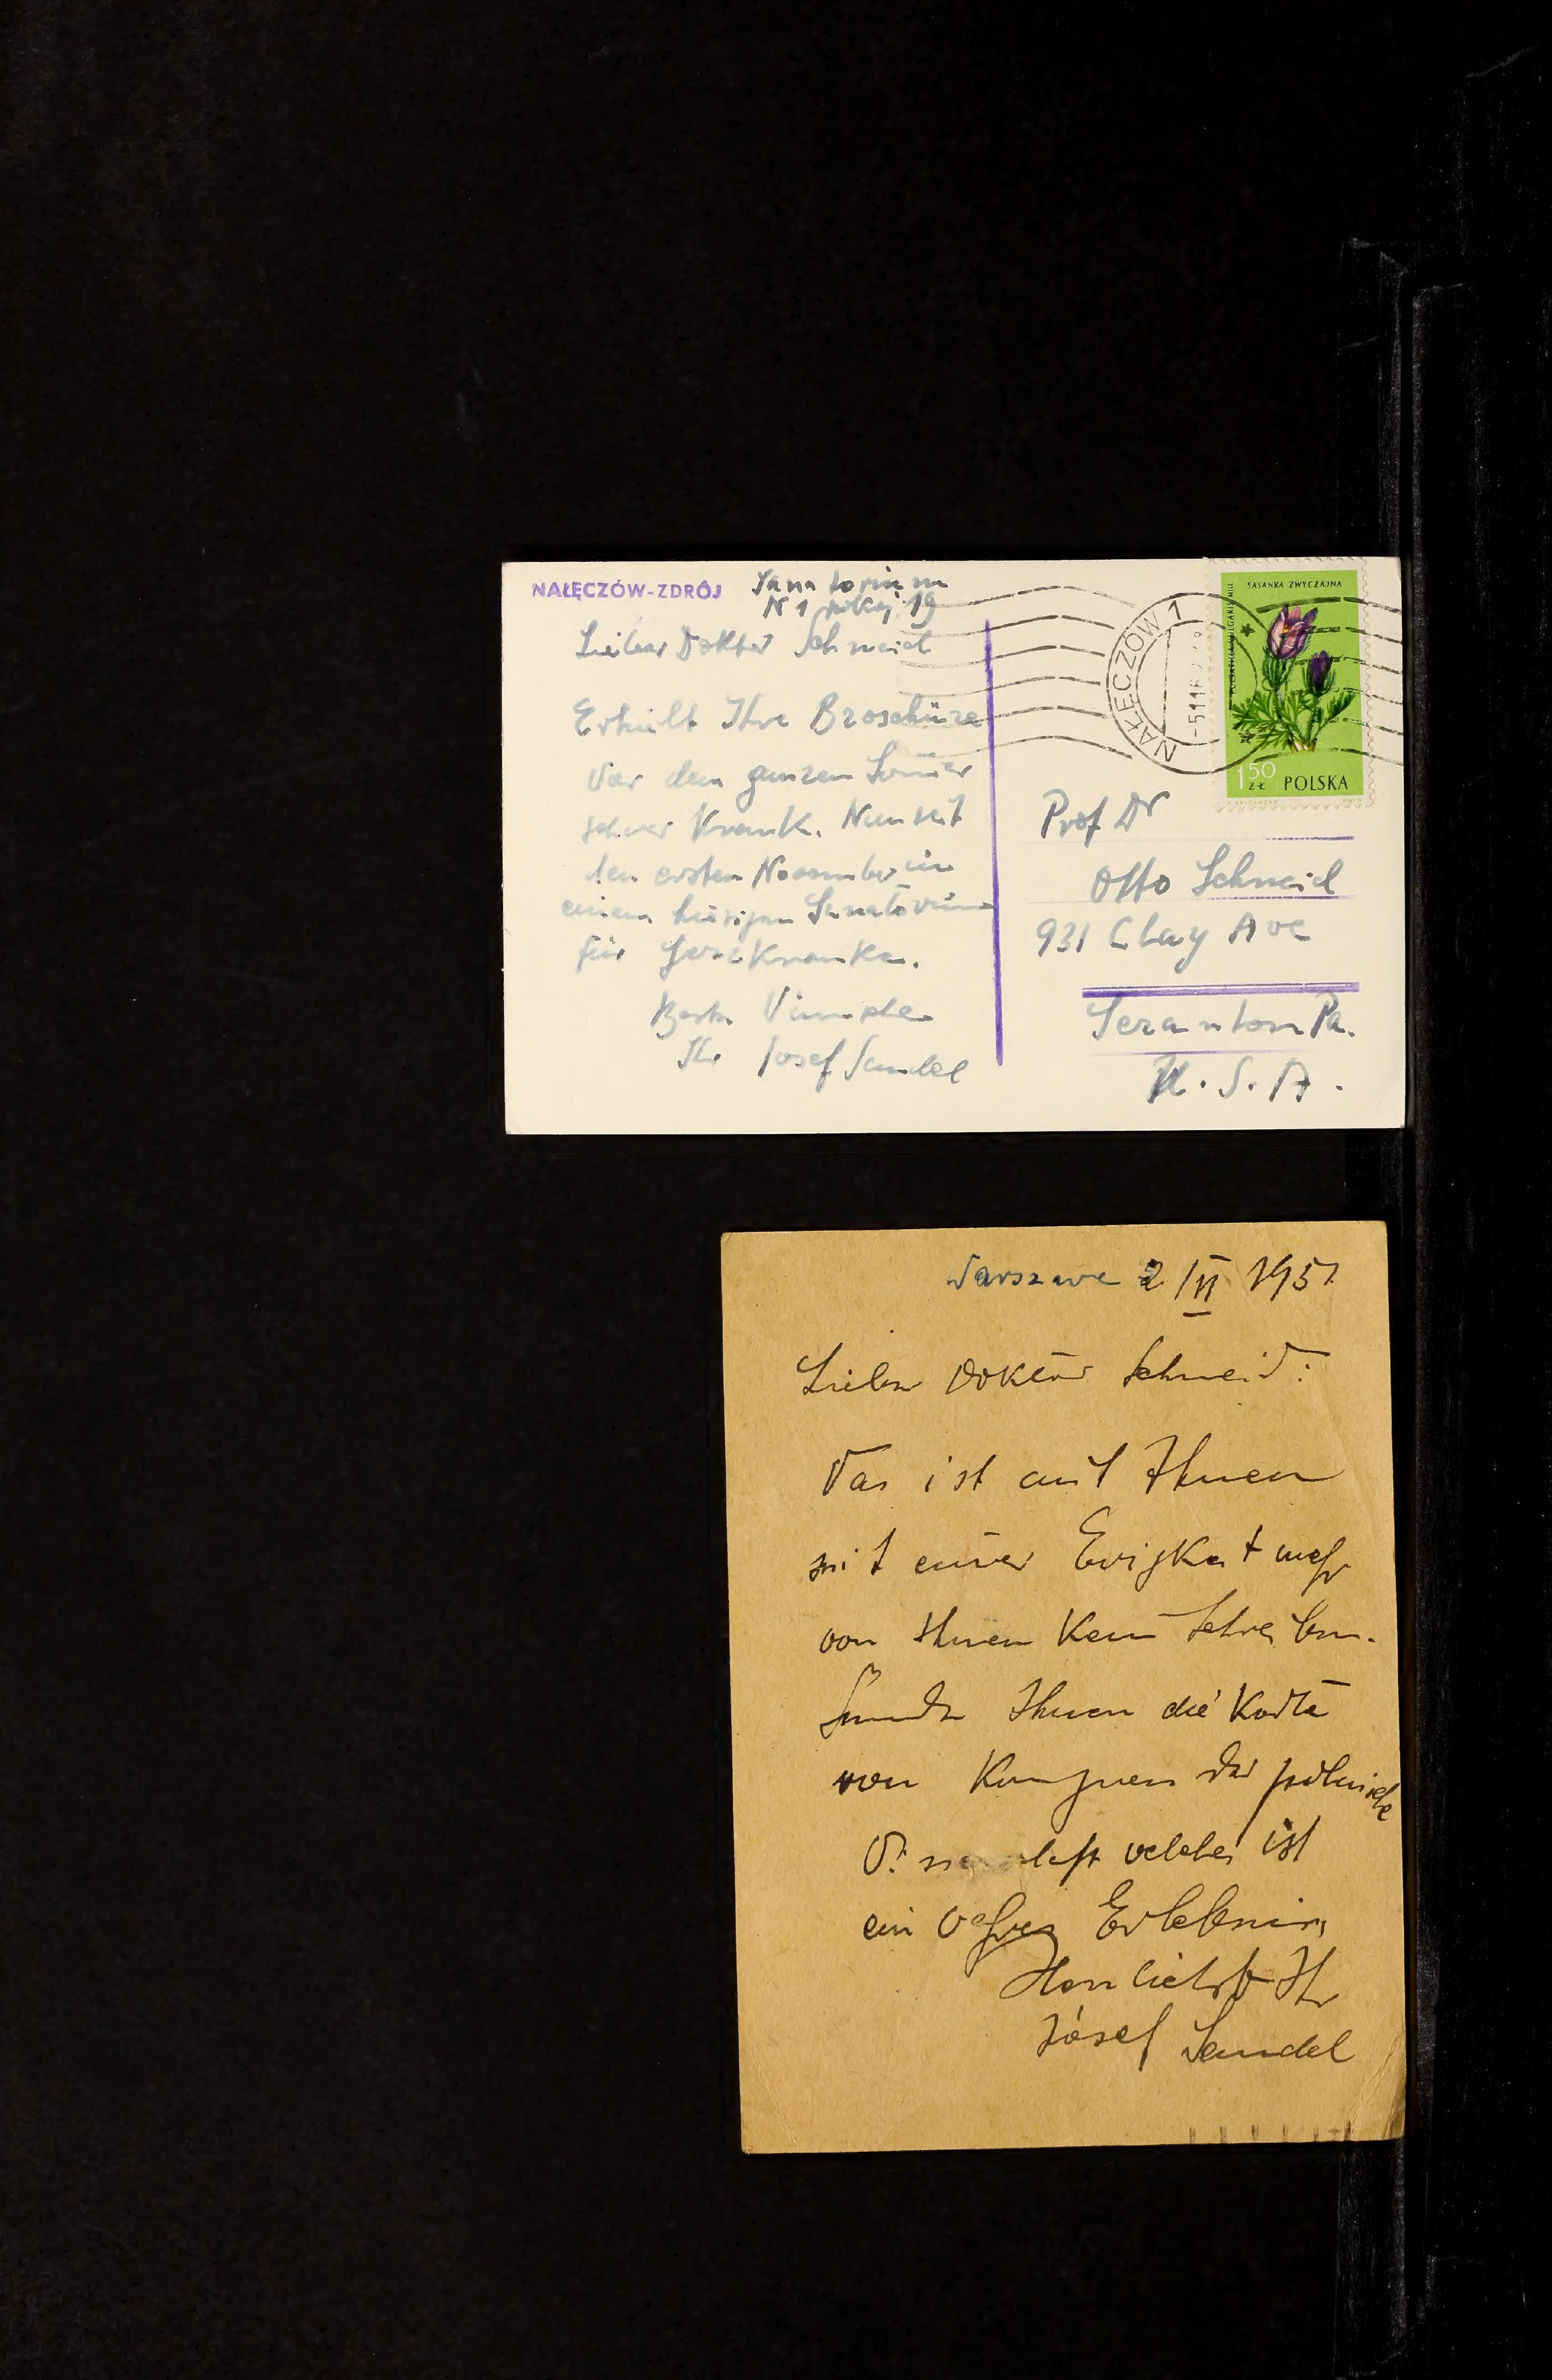 NAŁĘCZÓW-ZDRÓJ Sanatorium
N 1 pokój 19
Lieber Doktor Schneid
Erhielt Ihre Broschüre
Var den ganzen Somer
schver Krank. Nun seit
den ersten November in
einem hiesigen Sanatorium
für Herzkranke.
Beste Vünsche
Ihr Josef Sandel
NAŁĘCZÓW 1
SASANKA ZWYCZAJNA
150 ZŁ POLSKA
Prof Dr
Otto Schneid
931 Clay Ave
Scranton Pa.
U.S.A.
Warszawa 2/II 1951
Lieber Doktor Schneid:
Vas ist mit Ihnen
seit einer Evigkeit mehr
von Ihnen Kein Schreiben.
Sende Ihnen die Karte
von Kongress der polnische
welches ist
ein vahres Erlebnis,
Herzlichst Ihr
Józef Sandel